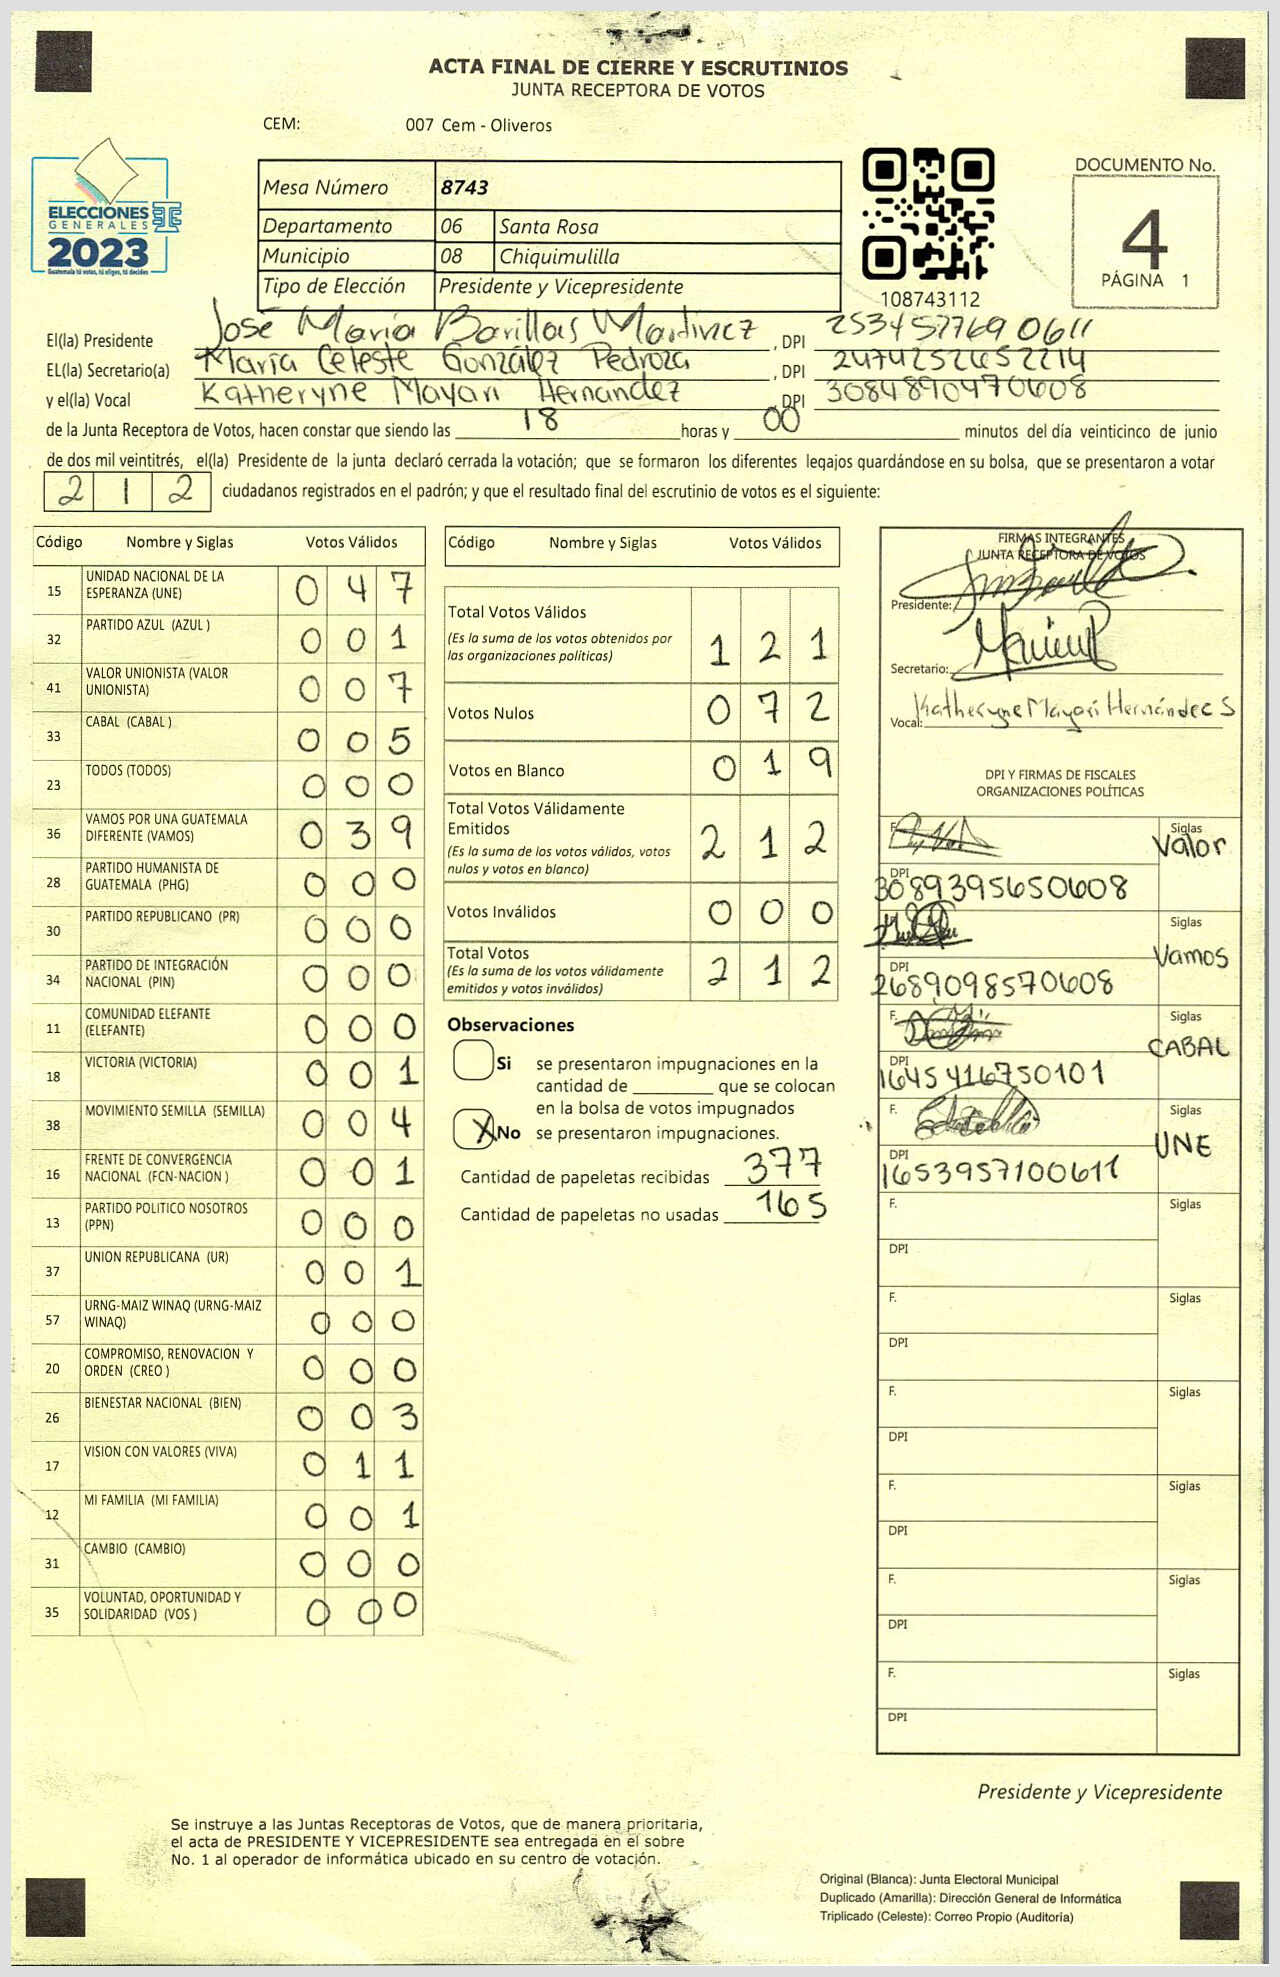 ACTA FINAL DE CIERRE Y ESCRUTINIOS
JUNTA RECEPTORA DE VOTOS
CEM: 007 Cem - Oliveros
ELECCIONES
GENERALES
2023
Guatemala tú votas, tú eliges, tú decides
Mesa Número 8743
Departamento 06 Santa Rosa
Municipio 08 Chiquimulilla
Tipo de Elección Presidente y Vicepresidente
108743112
DOCUMENTO No.
4
PÁGINA 1
El(la) Presidente José María Barillas Martinez, DPI 2534577690611
EL(la) Secretario(a) María Celeste González Pedroza, DPI 2474252652214
y el(la) Vocal Katheryne Mayarí Hernández, DPI 3084890470608
de la Junta Receptora de Votos, hacen constar que siendo las 18 horas y 00 minutos del día veinticinco de junio
de dos mil veintitrés, el(la) Presidente de la junta declaró cerrada la votación; que se formaron los diferentes legajos guardándose en su bolsa, que se presentaron a votar
212 ciudadanos registrados en el padrón; y que el resultado final del escrutinio de votos es el siguiente:
Código Nombre y Siglas Votos Válidos
15 UNIDAD NACIONAL DE LA ESPERANZA (UNE) 047
32 PARTIDO AZUL (AZUL ) 001
41 VALOR UNIONISTA (VALOR UNIONISTA) 007
33 CABAL (CABAL ) 005
23 TODOS (TODOS) 000
36 VAMOS POR UNA GUATEMALA DIFERENTE (VAMOS) 039
28 PARTIDO HUMANISTA DE GUATEMALA (PHG) 000
30 PARTIDO REPUBLICANO (PR) 000
34 PARTIDO DE INTEGRACIÓN NACIONAL (PIN) 000
11 COMUNIDAD ELEFANTE (ELEFANTE) 000
18 VICTORIA (VICTORIA) 001
38 MOVIMIENTO SEMILLA (SEMILLA) 004
16 FRENTE DE CONVERGENCIA NACIONAL (FCN-NACION ) 001
13 PARTIDO POLITICO NOSOTROS (PPN) 000
37 UNION REPUBLICANA (UR) 001
57 URNG-MAIZ WINAQ (URNG-MAIZ WINAQ) 000
20 COMPROMISO, RENOVACION Y ORDEN (CREO ) 000
26 BIENESTAR NACIONAL (BIEN) 003
17 VISION CON VALORES (VIVA) 011
12 MI FAMILIA (MI FAMILIA) 001
31 CAMBIO (CAMBIO) 000
35 VOLUNTAD, OPORTUNIDAD Y SOLIDARIDAD (VOS ) 000
Código Nombre y Siglas Votos Válidos
Total Votos Válidos 121
(Es la suma de los votos obtenidos por
las organizaciones politicas)
Votos Nulos 072
Votos en Blanco 019
Total Votos Válidamente
Emitidos 212
(Es la suma de los votos válidos, votos
nulos y votos en blanco)
Votos Inválidos 000
Total Votos 212
(Es la suma de los votos válidamente
emitidos y votos inválidos)
Observaciones
Si se presentaron impugnaciones en la
cantidad de ________ que se colocan
en la bolsa de votos impugnados
X No se presentaron impugnaciones.
Cantidad de papeletas recibidas 377
Cantidad de papeletas no usadas 165
FIRMAS INTEGRANTES
JUNTA RECEPTORA DE VOTOS
Presidente:
Secretario:
Vocal: Katheryne Mayarí Hernández S
DPI Y FIRMAS DE FISCALES
ORGANIZACIONES POLÍTICAS
F. Siglas Valor
DPI 3089395650608
F. Siglas Vamos
DPI 2689098570608
F. Siglas CABAL
DPI 1645416750101
F. Siglas UNE
DPI 1653957100611
F. Siglas
DPI
F. Siglas
DPI
F. Siglas
DPI
F. Siglas
DPI
F. Siglas
DPI
F. Siglas
DPI
Presidente y Vicepresidente
Se instruye a las Juntas Receptoras de Votos, que de manera prioritaria,
el acta de PRESIDENTE Y VICEPRESIDENTE sea entregada en el sobre
No. 1 al operador de informática ubicado en su centro de votación.
Original (Blanca): Junta Electoral Municipal
Duplicado (Amarilla): Dirección General de Informática
Triplicado (Celeste): Correo Propio (Auditoría)